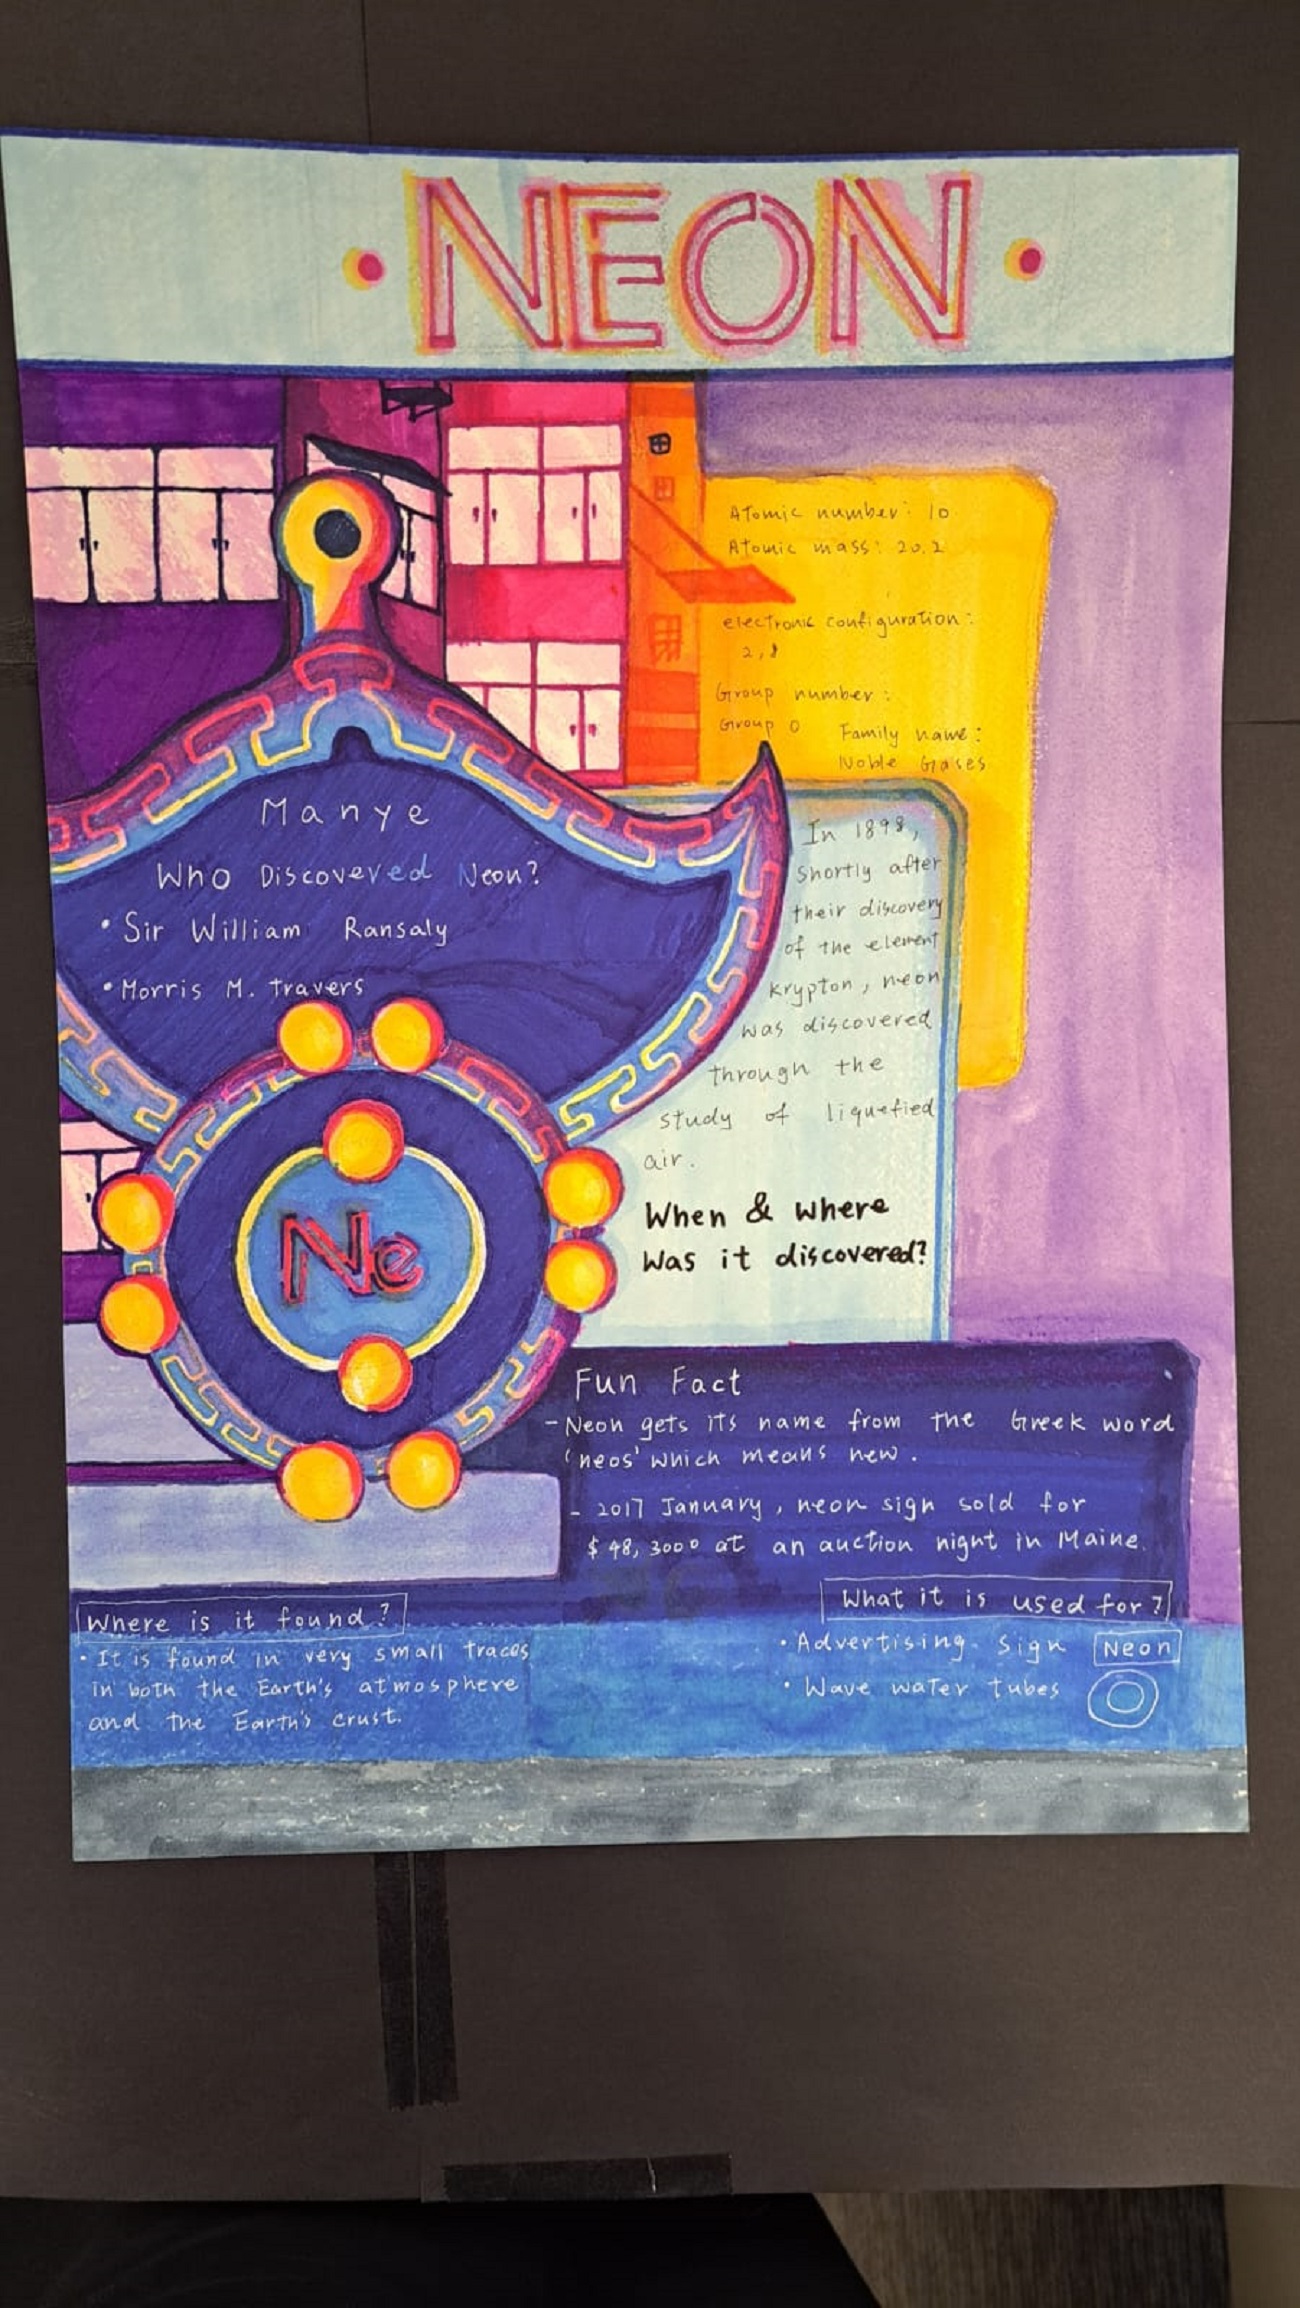 NEON
Atomic number: 10
Atomic mass: 20.2
electronic configuration:
2,8
Group number:
Group 0
Family name:
Noble Gases
Manye
Who Discovered Neon?
• Sir William Ransaly
• Morris M. travers
In 1898,
shortly after
their discovery
of the element
krypton, neon
was discovered
through the
study of liquefied
air.
When & where
was it discovered?
Ne
Fun Fact
- Neon gets its name from the Greek word
'neos' which means new.
- 2017 January, neon sign sold for
$48,3000 at an auction night in Maine.
Where is it found?
• It is found in very small traces
in both the Earth's atmosphere
and the Earth's crust.
What it is used for?
• Advertising sign Neon
• Wave water tubes